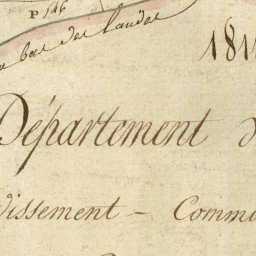 P 146
bas des Landes
181
Département d
dissement - Commu